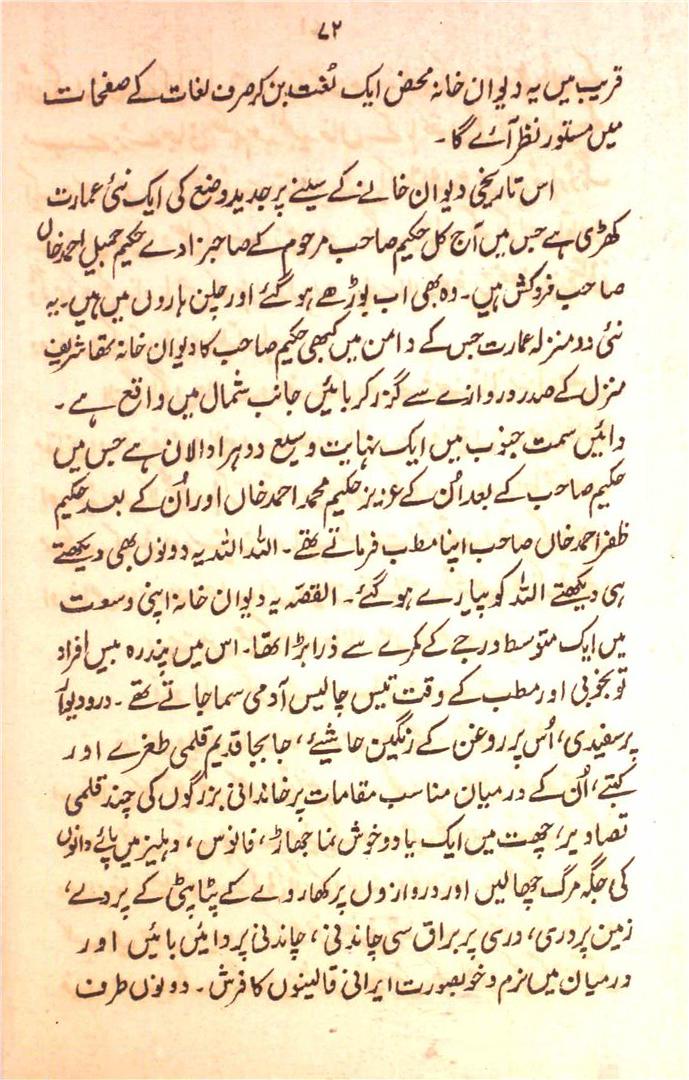 ۷۲
قریب میں یہ دیوان خانہ محض ایک لُغت بن کر صرف لغات کے صفحات
میں مستور نظر آئے گا۔
اس تاریخی دیوان خانے کے سینے پر جدید وضع کی ایک نئی عمارت
کھڑی ہے جس میں آج کل حکیم صاحب مرحوم کے صاحبزادے حکیم جمیل احمد خاں
صاحب فروکش ہیں۔ وہ بھی اب بوڑھے ہو گئے اور چلن ہاروں میں ہیں۔ یہ
نئی دو منزلہ عمارت جس کے دامن میں کبھی حکیم صاحب کا دیوان خانہ تھا شریف
منزل کے صدر دروازے سے گزر کر بائیں جانب شمال میں واقع ہے۔
دائیں سمت جنوب میں ایک نہایت وسیع دوہرا دالان ہے جس میں
حکیم صاحب کے بعد اُن کے عزیز حکیم محمد احمد خاں اور اُن کے بعد حکیم
ظفر احمد خاں صاحب اپنا مطب فرماتے تھے۔ اللہ اللہ یہ دونوں بھی دیکھتے
ہی دیکھتے اللہ کو پیارے ہو گئے۔ القصّہ یہ دیوان خانہ اپنی وسعت
میں ایک متوسط درجے کے کمرے سے ذرا بڑا تھا۔ اس میں پندرہ بیس افراد
تو بخوبی اور مطب کے وقت تیس چالیس آدمی سما جاتے تھے۔ درو دیوار
پر سفیدی، اُس پر روغن کے رنگین حاشیئے، جابجا قدیم قلمی طغرے اور
کتبے، اُن کے درمیان مناسب مقامات پر خاندانی بزرگوں کی چند قلمی
تصاویر، چھت میں ایک یا دو خوش نما جھاڑ، فانوس، دہلیز میں پائے دانوں
کی جگہ مرگ چھالیں اور دروازوں پر کھاروے کے پٹاپٹی کے پردے،
زمین پر دری، دری پر براق سی چاندنی، چاندنی پر دائیں بائیں اور
درمیان میں نرم و خوبصورت ایرانی قالینوں کا فرش۔ دونوں طرف